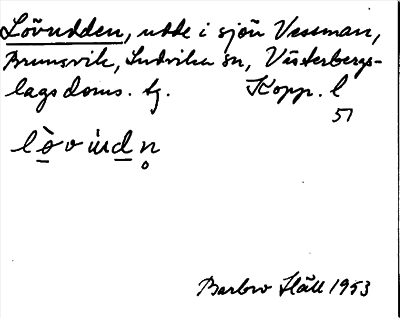 Lövudden, udde i sjön Vessman,
Brunnsvik, Ludvika sn, Västerbergs-
lags doms. tg. Kopp. l
51
lò̱v úd̲n̥
Barbro Häll 1953